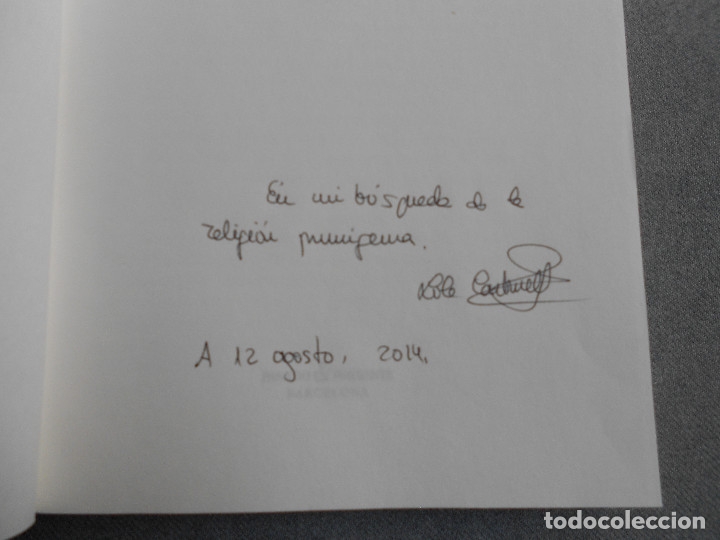 En mi búsqueda de la
religión primigenia.
A 12 agosto, 2014.
todocoleccion
todocoleccion.net